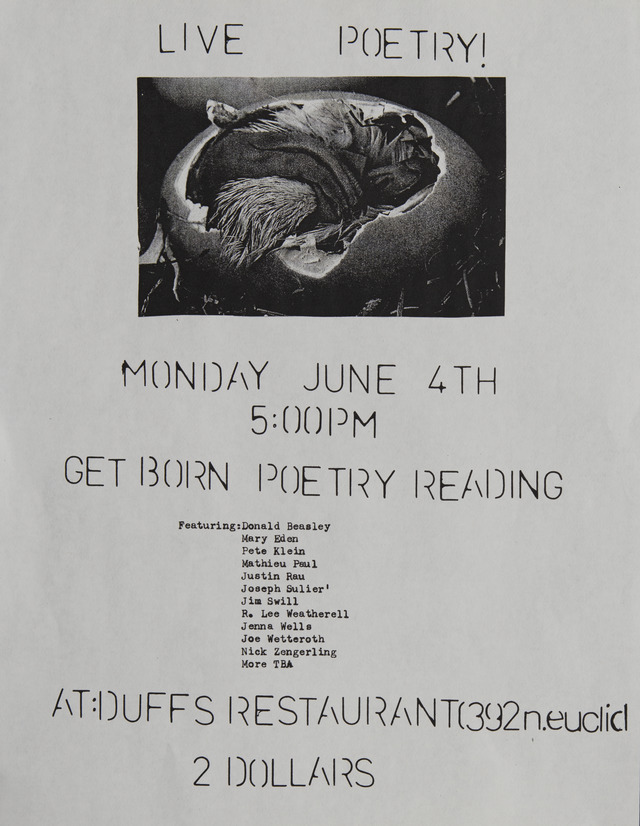 LIVE POETRY!
MONDAY JUNE 4TH
5:00PM
GET BORN POETRY READING
Featuring:Donald Beasley
Mary Eden
Pete Klein
Mathieu Paul
Justin Rau
Joseph Sulier'
Jim Swill
R. Lee Weatherell
Jenna Wells
Joe Wetteroth
Nick Zengerling
More TBA
AT:DUFFS RESTAURANT(392n.euclid
2 DOLLARS